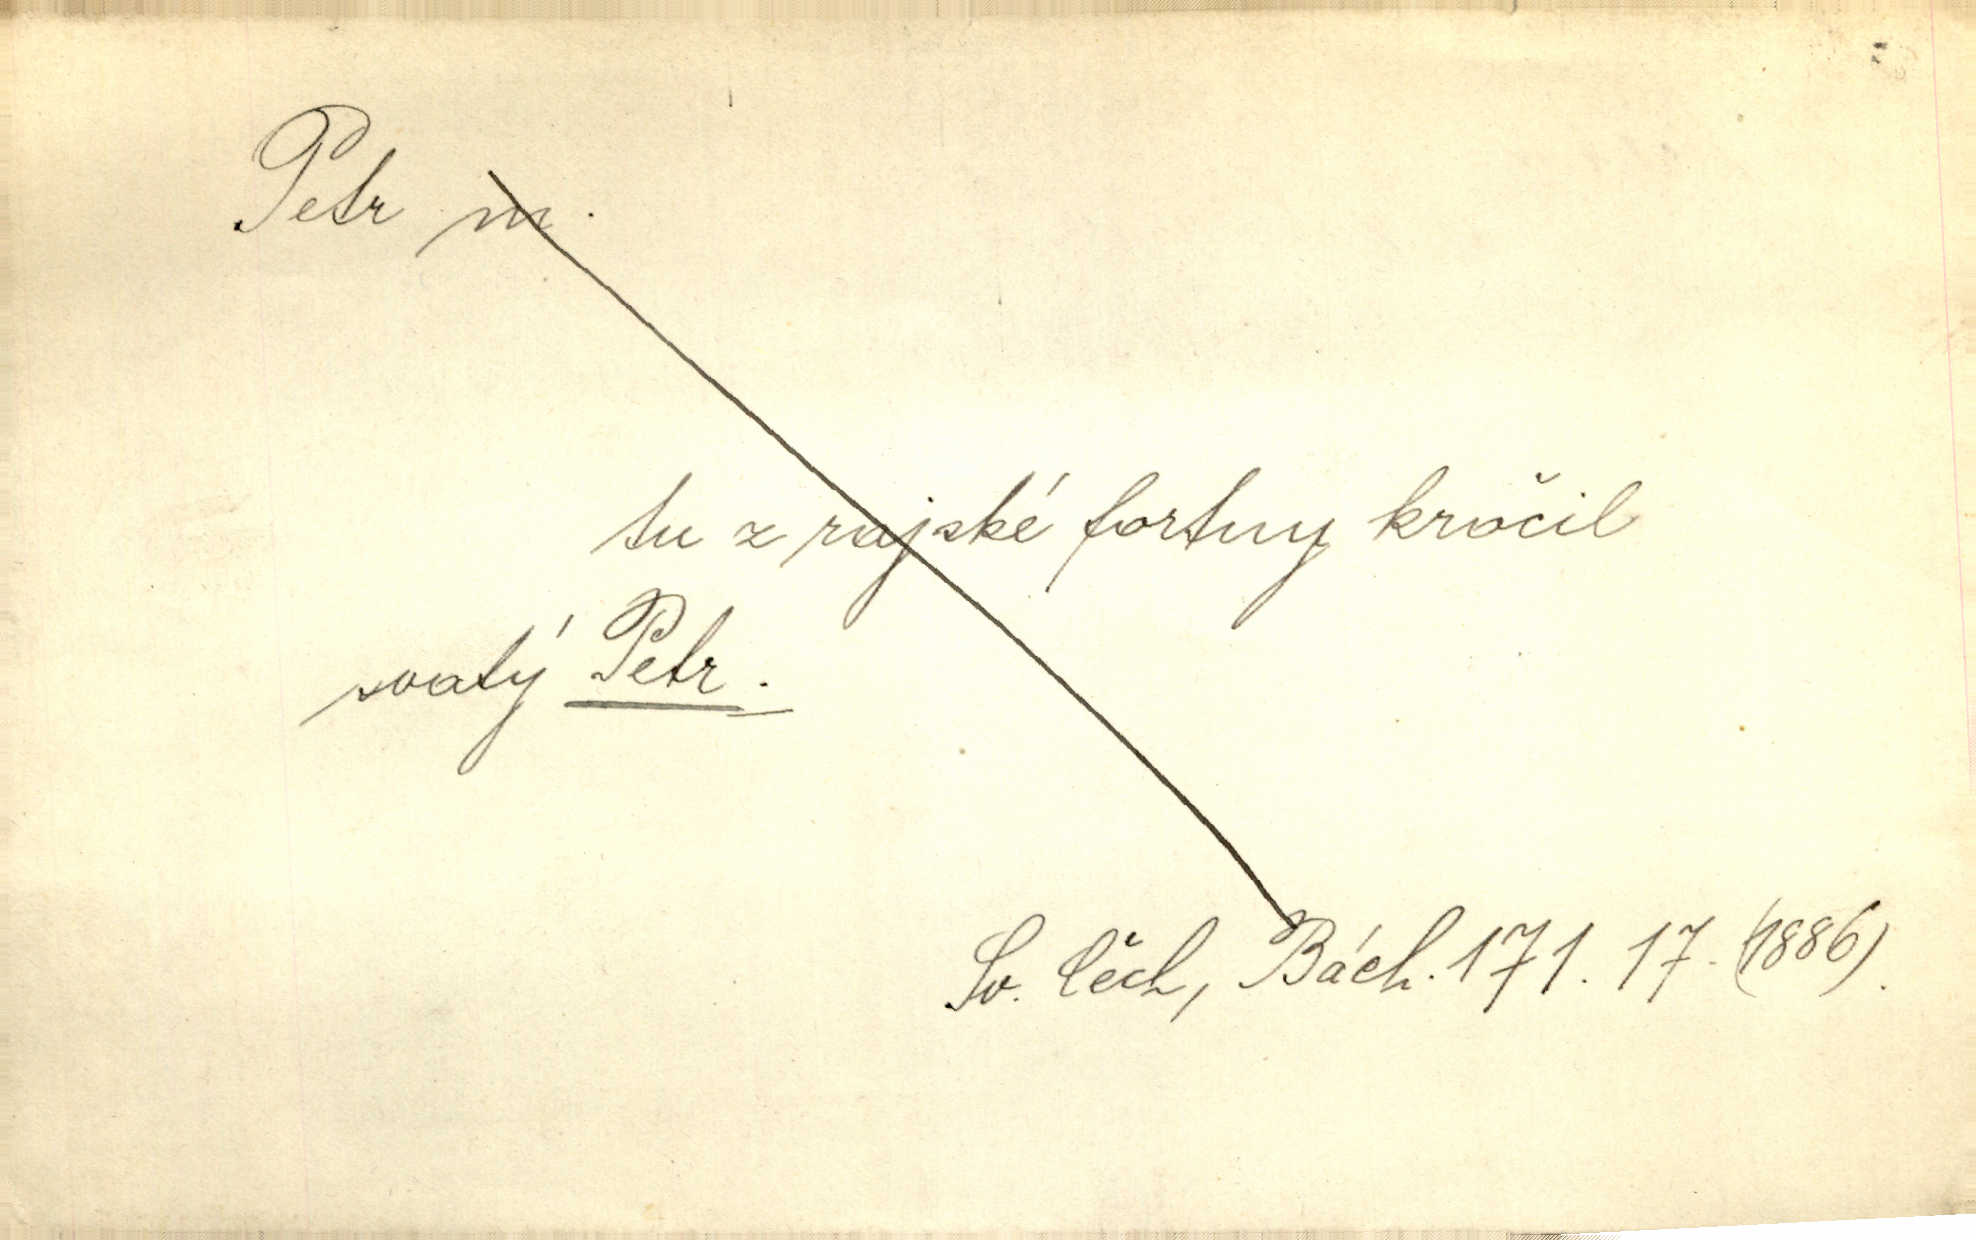 Petr m.
tu z rajské fortny kročil
svatý Petr.
Sv. Čech, Bách. 171. 17. (1886).